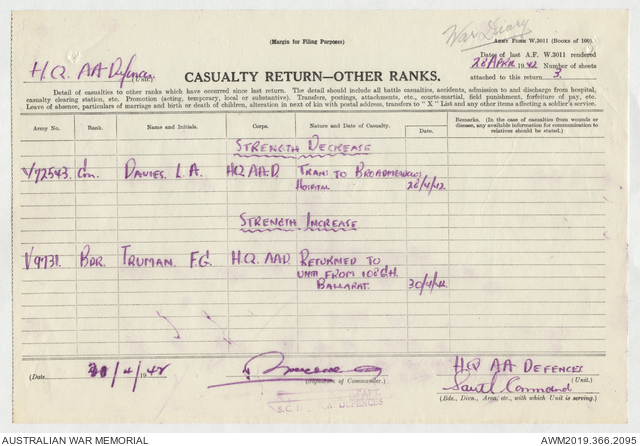 War Diary
(Margin for Filing Purposes)
ARMY FORM W.3011 (BOOKS OF 100).
Dates of last A.F. W.3011 rendered
H.Q. AA Defences
(Unit.)
28 APRIL 1942 Number of sheets
CASUALTY RETURN—OTHER RANKS.
attached to this return 3.
Detail of casualties to other ranks which have occurred since last return. The detail should include all battle casualties, accidents, admission to and discharge from hospital,
casualty clearing station, etc. Promotion (acting, temporary, local or substantive). Transfers, postings, attachments, etc., courts-martial, field punishment, forfeiture of pay, etc.
Leave of absence, particulars of marriage and birth or death of children, alteration in next of kin with postal address, transfers to "X" List and any other items affecting a soldier's service.
Army No. Rank. Name and Initials. Corps. Nature and Date of Casualty. Date. Remarks. (In the case of casualties from wounds or disease, any available information for communication to relatives should be stated.)
STRENGTH DECREASE
V72543. Gnr. DAVIES. L.A. H.Q. A.A.D. TRAN. TO BROADMEADOWS
HOSPITAL 28/4/42.
STRENGTH INCREASE
V9731. BDR. TRUMAN. F.G. H.Q. AAD. RETURNED TO
UNIT FROM 108 G.H.
BALLARAT. 30/4/42.
(Date 30/4/1942
(Signature of Commander.)
H.Q AA DEFENCES
(Unit.)
South Command
(Bde., Divn., Area, etc., with which Unit is serving.)
DEFENCES
AUSTRALIAN WAR MEMORIAL
AWM2019.366.2095